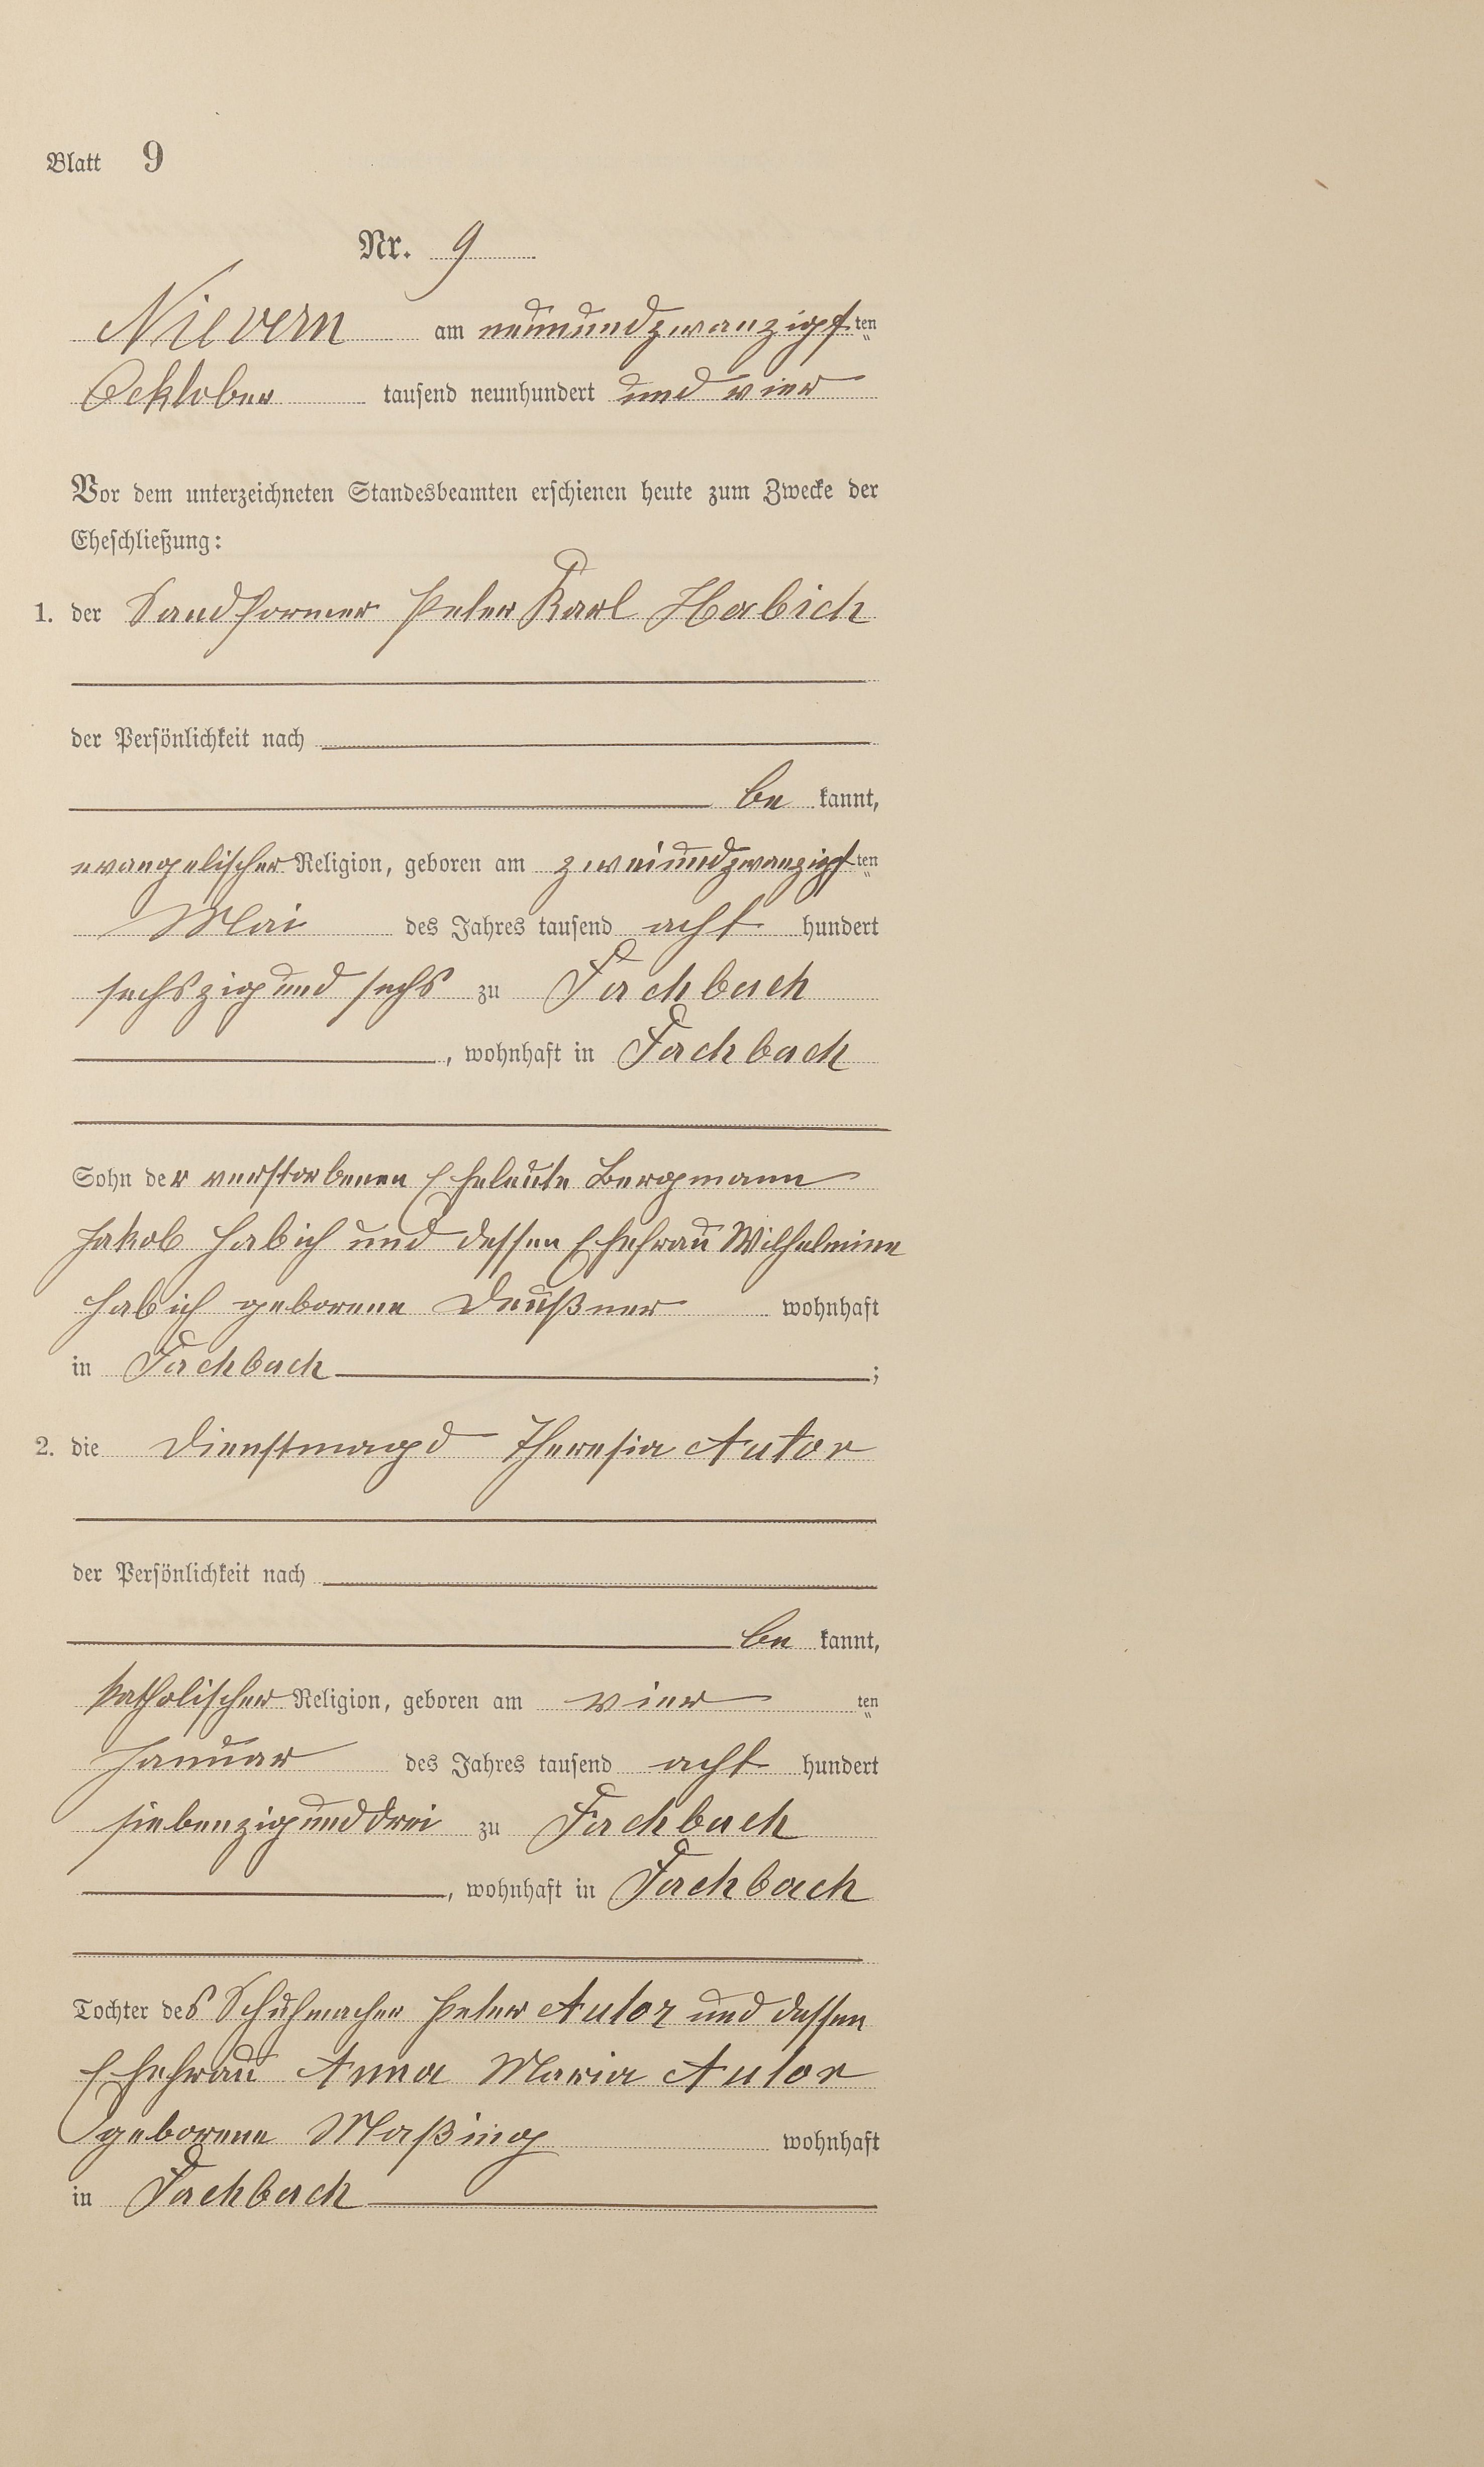 Blatt 9
Nr. 9
Nievern am neunundzwanzigsten
Ocktober tausend neunhundert und vier
Vor dem unterzeichneten Standesbeamten erschienen heute zum Zwecke der
Eheschließung:
1. der Sandformer Peter Karl Habich
der Persönlichkeit nach
be kannt,
evangelischer Religion, geboren am zweiundzwanzigsten
Mai des Jahres tausend acht hundert
sechszig und sechs zu Fachbach
, wohnhaft in Fachbach
Sohn der verstorbenen Eheleute Bergmann
Jakob Habich und dessen Ehefrau Wilhelmine
Habich geborene Deußner wohnhaft
in Fachbach ;
2. die Dienstmagd Theresia Autor
der Persönlichkeit nach
be kannt,
katholischer Religion, geboren am vier ten
Januar des Jahres tausend acht hundert
siebenzig und drei zu Fachbach
, wohnhaft in Fachbach
Tochter des Schuhmacher Peter Autor und dessen
Ehefrau Anna Maria Autor
geborene Maßing wohnhaft
in Fachbach